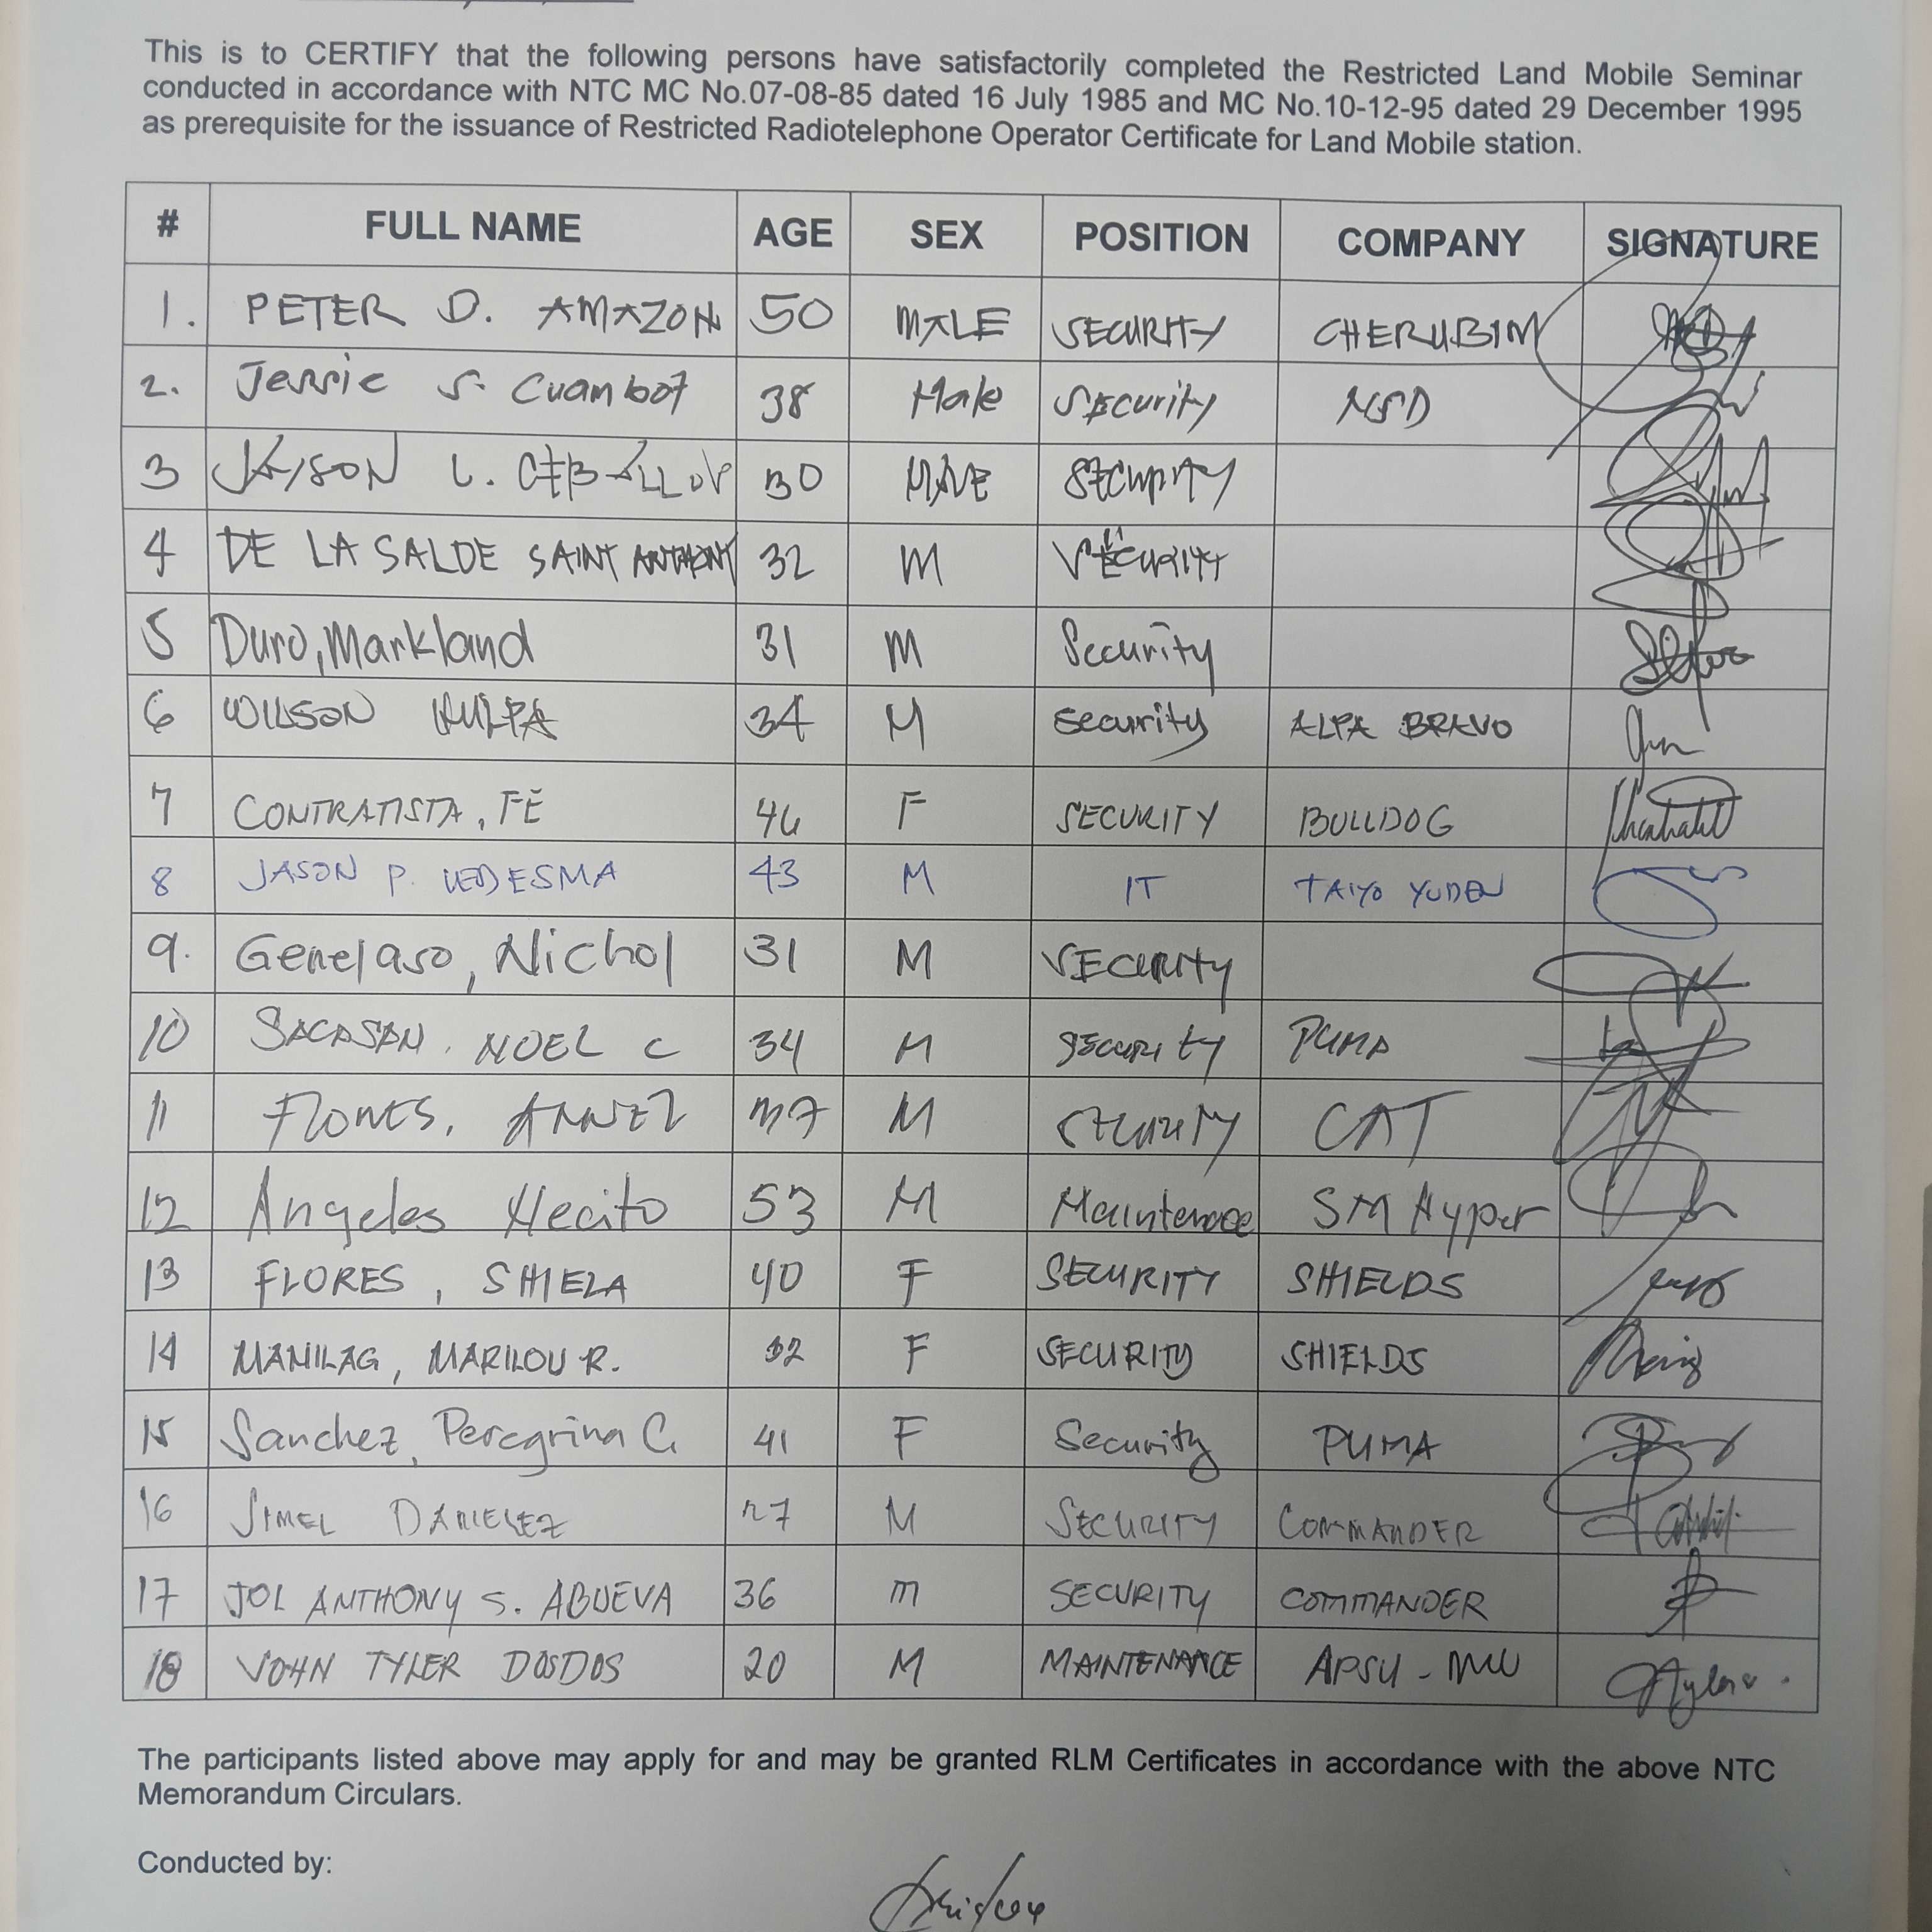 This is to CERTIFY that the following persons have satisfactorily completed the Restricted Land Mobile Seminar
conducted in accordance with NTC MC No.07-08-85 dated 16 July 1985 and MC No.10-12-95 dated 29 December 1995
as prerequisite for the issuance of Restricted Radiotelephone Operator Certificate for Land Mobile station.
# FULL NAME AGE SEX POSITION COMPANY SIGNATURE
1. PETER D. AMAZON 50 MALE SECURITY CHERUBIM
2. Jerric S. Cuambot 38 Male Security NSD
3 JAYSON L. 30 MALE SECURITY
4 DE LA SALDE SAINT ANTHONY 32 M SECURITY
5 Duro, Markland 31 M Security
6 WILSON 34 M Security ALPA BRAVO
7 CONTRATISTA, FE 46 F SECURITY BULLDOG
8 JASON P. LEDESMA 43 M IT TAIYO YUDEN
9. Genelaso, Nichol 31 M SECURITY
10 SACASAN, NOEL C 34 M Security PUMA
11 FLORES, 37 M SECURITY CAT
12 Angeles Hecito 53 M Maintenace SM Hyper
13 FLORES, SHIELA 40 F SECURITY SHIELDS
14 MANILAG, MARILOU R. 32 F SECURITY SHIELDS
15 Sanchez, Peregrina C. 41 F Security PUMA
16 JIMEL DANIELEZ 27 M SECURITY COMMANDER
17 JOL ANTHONY S. ABUEVA 36 M SECURITY COMMANDER
18 JOHN TYLER DOSDOS 20 M MAINTENANCE APSU - MW
The participants listed above may apply for and may be granted RLM Certificates in accordance with the above NTC
Memorandum Circulars.
Conducted by: